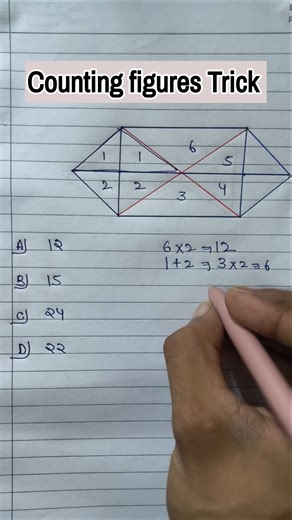 Counting figures Trick
6
1 1 5
2 2 4
3
A) 12
B) 15
C) 24
D) 22
6×2⇒12
1+2⇒3×2⇒6